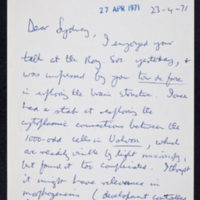 27 APR 1971 23-4-71
Dear Sydney,
I enjoyed your
talk at the Roy Soc yesterday, &
was impressed by your tour de force
in exploring the brain structure. I once
had a stab at exploring the
cytoplasmic connections between the
1000-odd cells in Volvox, which
are readily visible by light microscopy, but
found it too complicated. I thought
it might have relevance in
morphogenesis (development controlled